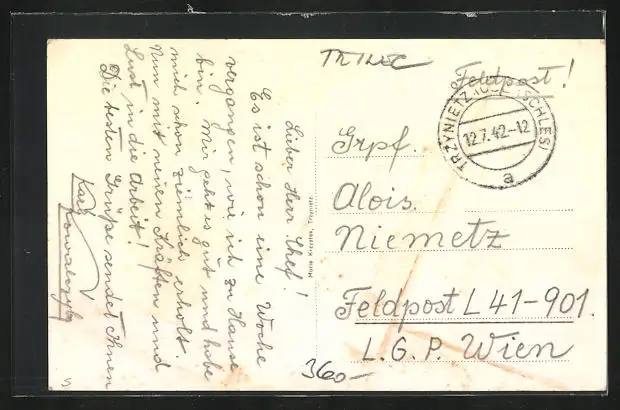 TRINEC
Feldpost!
TRZYNIETZ (OBERSCHLES)
12.7.42-12
a
Grpf.
Alois.
Niemetz
Feldpost L 41-901.
L.G.P. Wien
Lieber Herr Chef!
Es ist schon eine Woche
vergangen, wie ich zu Hause
bin. Mir geht es gut und habe
mich schon ziemlich erholt.
Nun mit neuen Kräften und
Lust in die Arbeit!
Die besten Grüße sendet Ihnen
360-